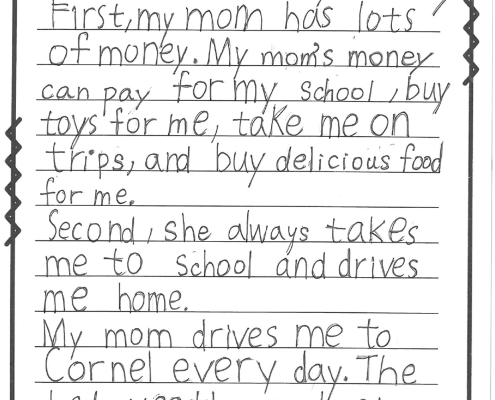 First, my mom has lots
of money. My mom's money
can pay for my school, buy
toys for me, take me on
trips, and buy delicious food
for me.
Second, she always takes
me to school and drives
me home.
My mom drives me to
Cornel every day. The